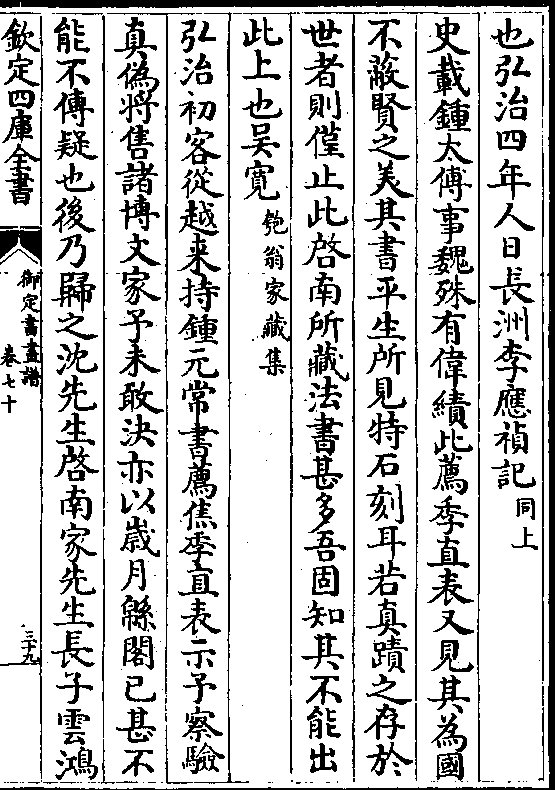 也弘治四年人日長洲李應禎記同上
史載鍾太傅事魏殊有偉績此薦季直表又見其為國
不蔽賢之美其書平生所見特石刻耳若真蹟之存於
世者則僅止此啓南所藏法書甚多吾固知其不能出
此上也吳寛匏翁家藏集
弘治初客從越来持鍾元常書薦焦季直表示予察驗
真偽将售諸博文家予未敢決亦以嵗月緜閣已甚不
能不傳疑也後乃歸之沈先生啓南家先生長子雲鴻
欽定四庫全書
御定書畫譜
卷七十
三十九